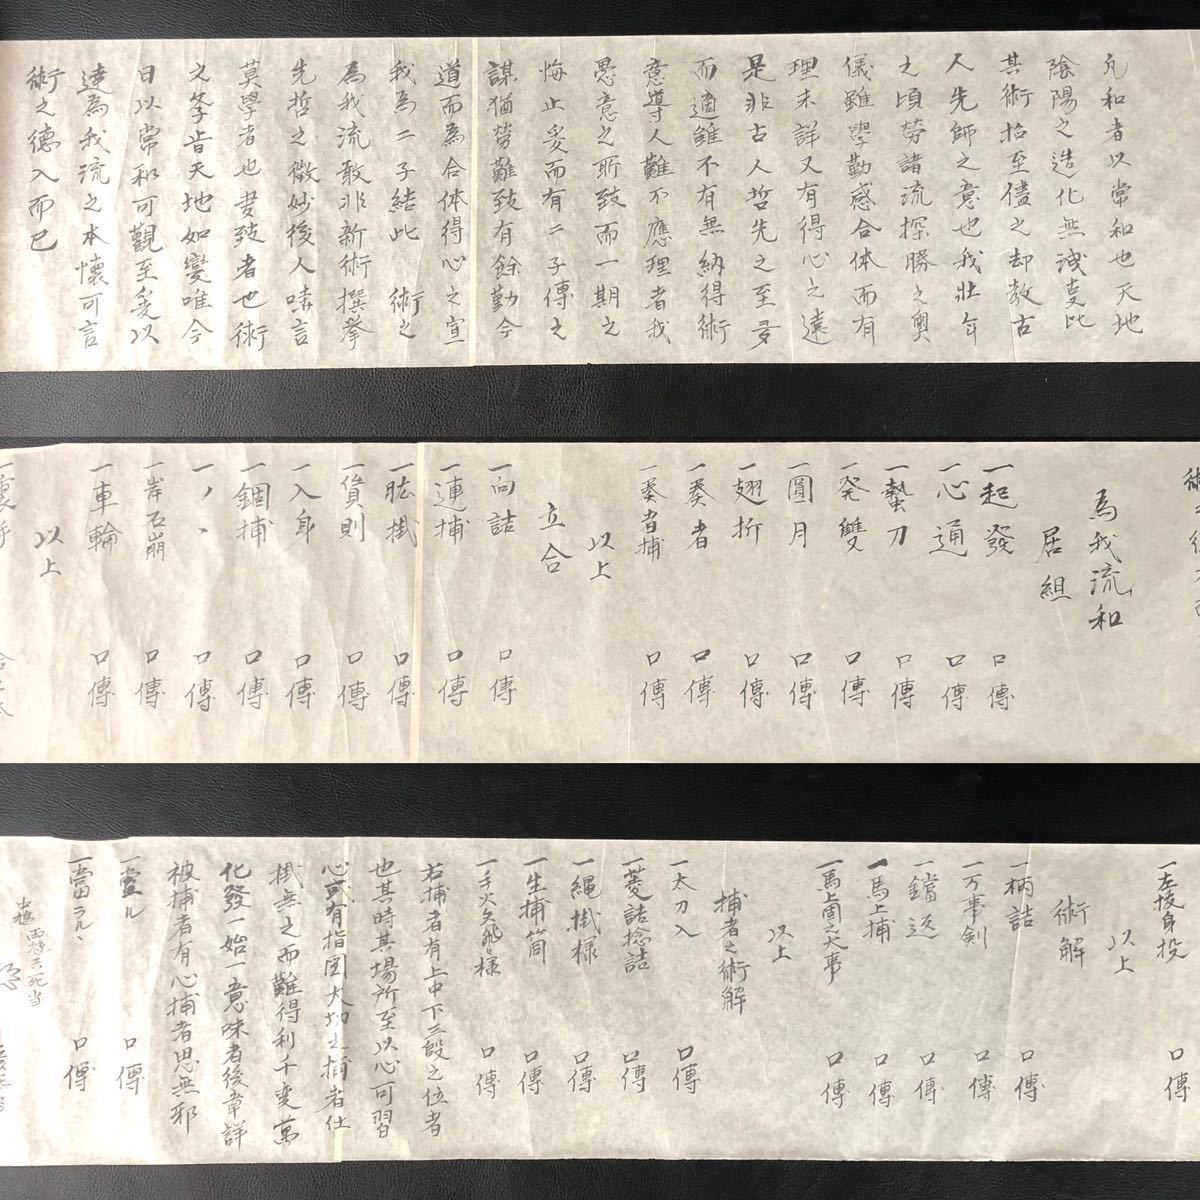 凡和者以常和也天地
陰陽之造化無減変比
其術抬至儘之却教古
人先師之意也我壮年
之頃労諸流探勝之奥
儀雖學勤感合体而有
理未詳又有得心之遠
是非古人哲先之至
而適雖不有無納得術
意導人難不應理者我
愚意之所致而一期之
悔止爰而有二子傳之
謀猶労難致有餘勤今
道而為合体得心之宣
我為二子結此術之
為我流敢非新術撰挙
先哲之微妙後人味言
莫學者也妻致者也術
之学皆天地如變唯今
日以常和可觀至爰以
達為我流之本懐可言
術之德入而已
為我流和
居組
一起發 口傳
一心通 口傳
一蟄刀 口傳
一発雙 口傳
一圓月 口傳
一翅折 口傳
一奏者 口傳
一奏者捕 口傳
以上
立合
一向詰 口傳
一連捕 口傳
一肱掛 口傳
一負則 口傳
一入身 口傳
一錮捕 口傳
一ノヽ 口傳
一岸石崩 口傳
一車輪 口傳
以上
一左坂身投 口傳
以上
術解
一柄詰 口傳
一万事剣 口傳
一鐺返 口傳
一馬上捕 口傳
一馬上箇之大事 口傳
以上
捕者之術解
一太刀入 口傳
一菱詰捻詰 口傳
一縄掛様 口傳
一生捕筒 口傳
一手火矢飛様 口傳
若捕者有上中下三段之位者
也其時其場所至以心可習
心或有指図大切之捕者仕
掛無之而難得利千変萬
化發一始一意味者後章詳
被捕者有心捕者思無邪
一霊ル 口傳
一當ラルヽ 口傳